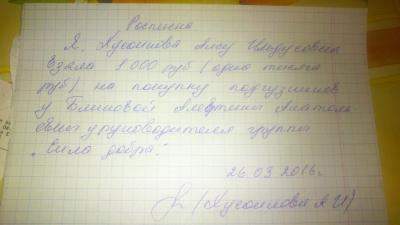 Расписка
Я, Хусаинова Алсу Ильдусовна
взяла 1.000 руб (одна тысяча
руб) на покупку подгузников
у Блиновой Алефтины Анатоль
евны у руководителя группы
"Сила добра".
26.03.2016г.
(Хусаинова А И)